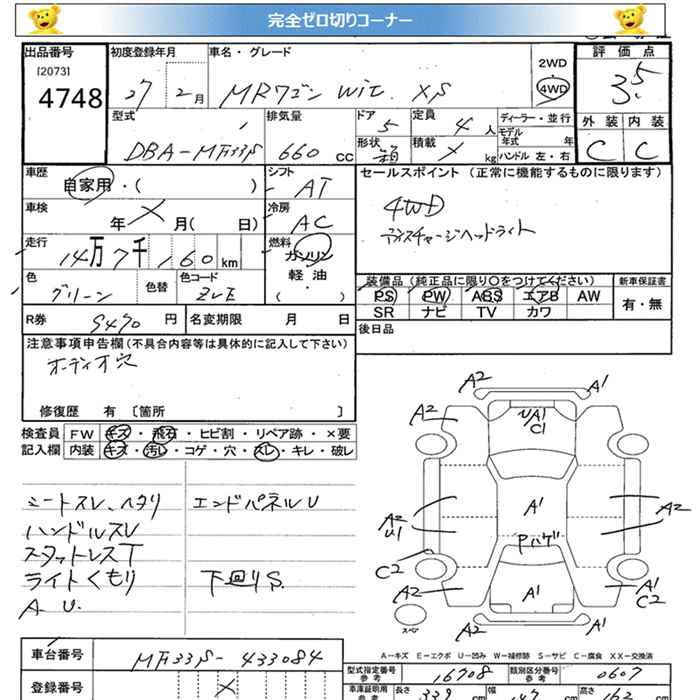 完全ゼロ切りコーナー
出品番号 初度登録年月 車名・グレード 2WD 評価点
[2073] 4748 27 2月 MRワゴン Wit XS 4WD 3.5
型式 排気量 ドア 定員 ディーラー・並行 外装 内装
DBA-MF33S 660 CC 5 4人 モデル年式 年 C C
形状 箱 積載 kg ハンドル 左・右
車歴 自家用・( ) シフト AT セールスポイント (正常に機能するものに限ります)
車検 年 月( 日) 冷房 AC 4WD
ディスチャージヘッドライト
走行 14万7千160km 燃料 ガソリン
軽油
( )
色 グリーン 色替 色コード ZVE
装備品(純正品に限り○をつけてください) 新車保証書
PS PW ABS エアB AW 有・無
SR ナビ TV カワ
R券 9470円 名変期限 月 日 後日品
注意事項申告欄(不具合内容等は具体的に記入して下さい)
オーディオ穴
修復歴 有 〔箇所 〕
検査員 FW キズ・飛石・ヒビ割・リペア跡・×要
記入欄 内装 キズ・汚レ・コゲ・穴・スレ・キレ・破レ
シートスレ、ヘタリ エンドパネルU
ハンドルスレ
スタットレスT
ライトくもり 下回りS.
A U.
A2 A1
A2 A1 C1
A2 U1 A1 A2
Pハゲ
C2 A2 A1 A1 C2
A2 A1
スペア
A-キズ E-エクボ U-凹み W-補修跡 S-サビ C-腐食 XX-交換済
車台番号 MF33S-433084
登録番号
型式指定番号 参考 16708 類別区分番号 参考 0607
車庫証明用 参考 長さ 339 cm 幅 147 cm 高さ 162 cm